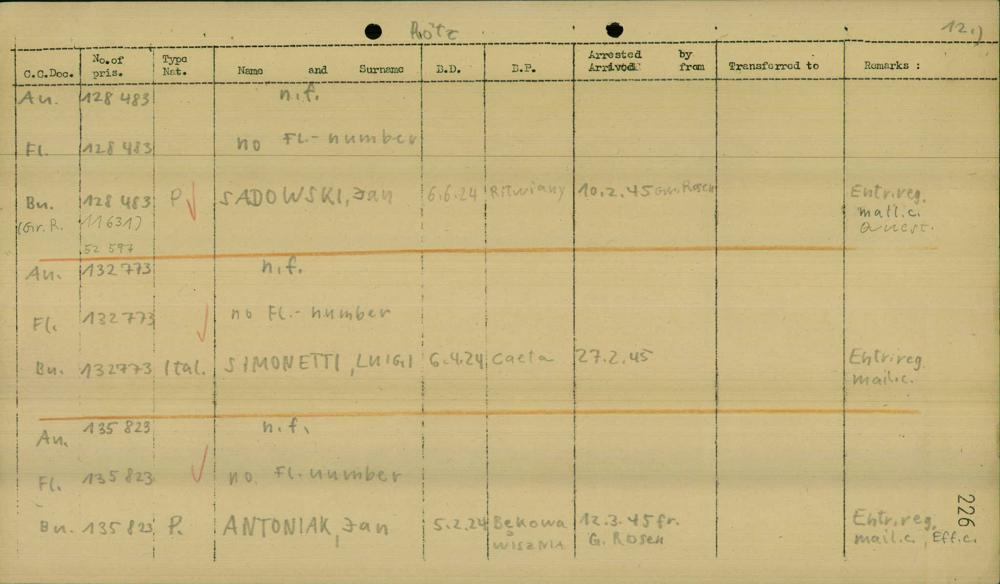 Rötz
12.)
C.C.Doc. No.of pris. Type Nat. Name and Surname B.D. B.P. Arrested by Arrived from Transferred to Remarks :
An. 128 483 n.f.
Fl. 128 483 no Fl.- number
Bu. 128 483 P SADOWSKI, Jan 6.6.24 Ritwiany 10.2.45 Gr. Rosen Entr.reg.
(Gr. R. 11631) mail.c.
52 597 Quest.
An. 132 773 n.f.
Fl. 132 773 no Fl.- number
Bu. 132773 Ital. SIMONETTI, LUIGI 6.4.24 Caeta 27.2.45 Entr.reg.
mail.c.
An. 135 823 n.f.
Fl. 135 823 no Fl. number
Bu. 135 823 P. ANTONIAK, Jan 5.2.24 Bekowa 12.3.45 fr. Entr.reg.
WISZNIA G. Rosen mail.c., Eff.c.
226